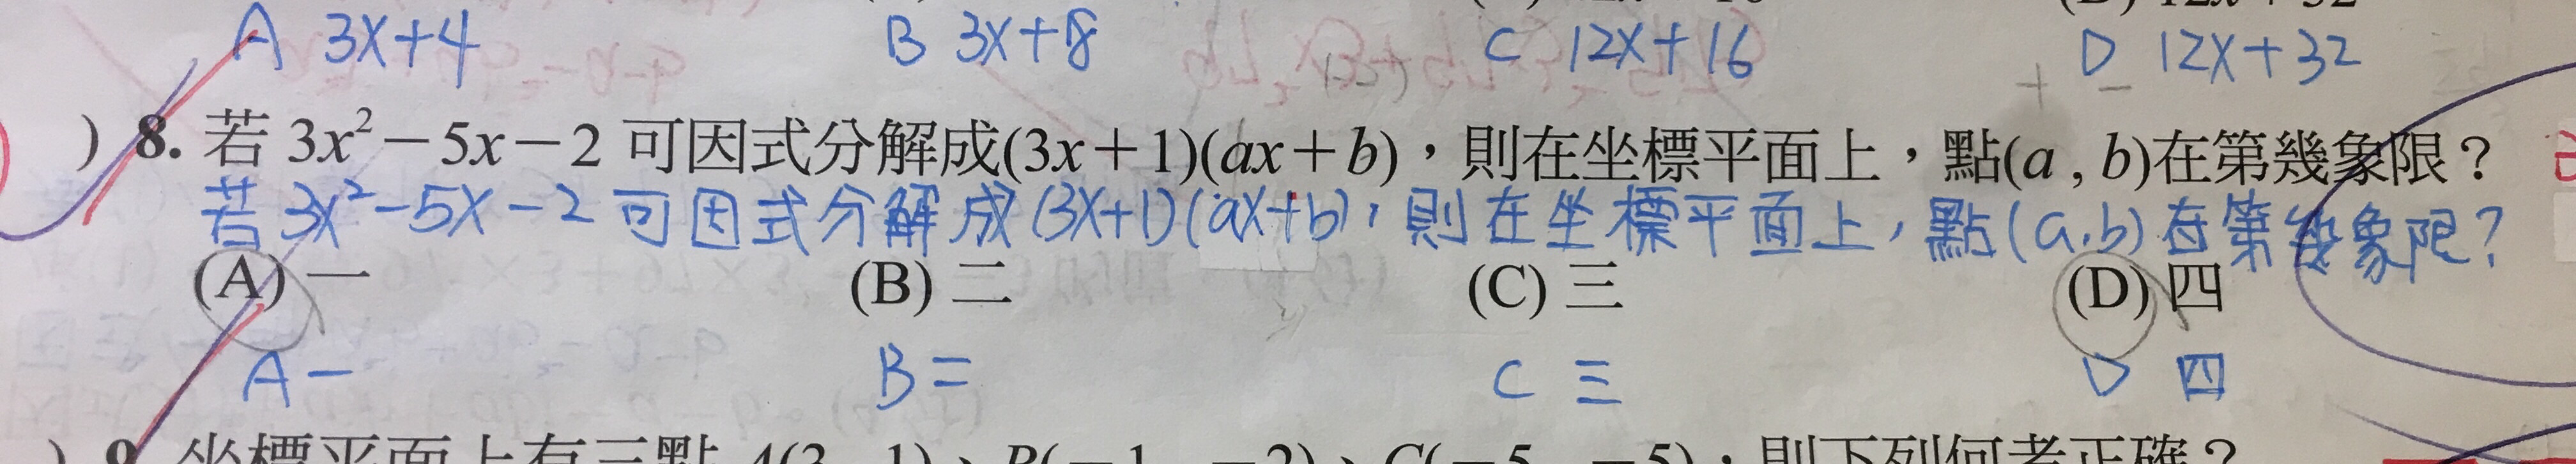 A 3x+4 B 3x+8 C 12x+16 D 12x+32
) 8. 若 3x²－5x－2 可因式分解成(3x＋1)(ax＋b)，則在坐標平面上，點(a , b)在第幾象限？
若 3x²-5x-2 可因式分解成(3x+1)(ax+b)，則在坐標平面上，點(a,b)在第幾象限?
(A) 一 (B) 二 (C) 三 (D) 四
A 一 B 二 C 三 D 四
) 9. 坐標平面上有三點 A(3 , 1)、B(－1 , －2)、C(－5 , －5)，則下列何者正確？